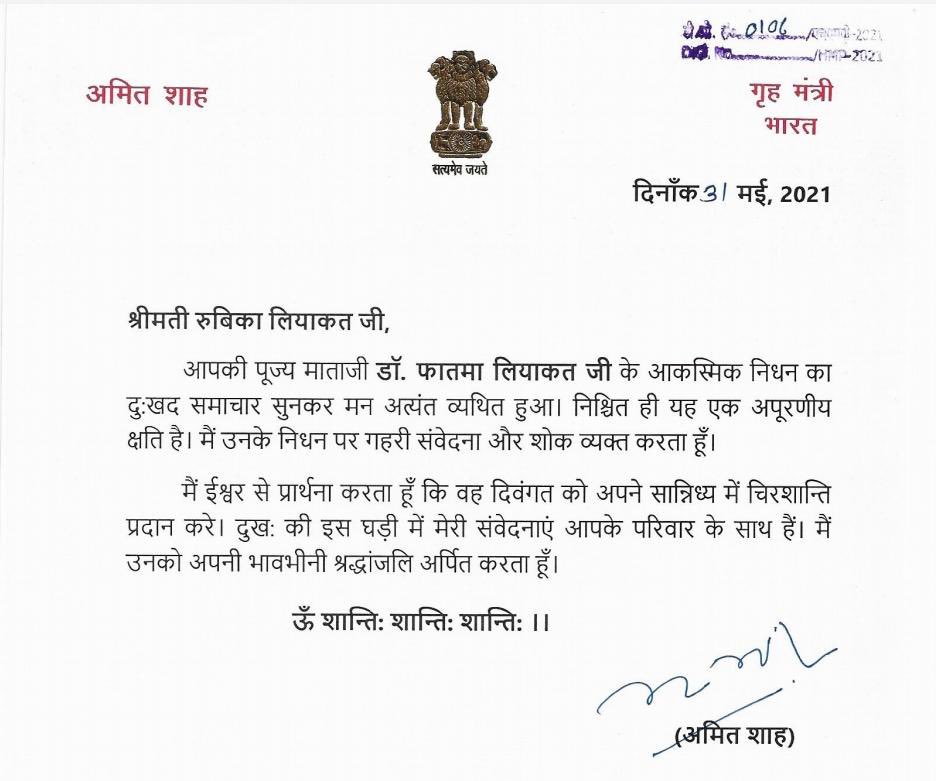 0106
/HMP-2021
अमित शाह
गृह मंत्री
भारत
सत्यमेव जयते
दिनाँक 31 मई, 2021
श्रीमती रुबिका लियाकत जी,
आपकी पूज्य माताजी डॉ. फातमा लियाकत जी के आकस्मिक निधन का
दुःखद समाचार सुनकर मन अत्यंत व्यथित हुआ। निश्चित ही यह एक अपूरणीय
क्षति है। मैं उनके निधन पर गहरी संवेदना और शोक व्यक्त करता हूँ।
मैं ईश्वर से प्रार्थना करता हूँ कि वह दिवंगत को अपने सान्निध्य में चिरशान्ति
प्रदान करे। दुख: की इस घड़ी में मेरी संवेदनाएं आपके परिवार के साथ हैं। मैं
उनको अपनी भावभीनी श्रद्धांजलि अर्पित करता हूँ।
ऊँ शान्ति: शान्ति: शान्ति: ।।
(अमित शाह)